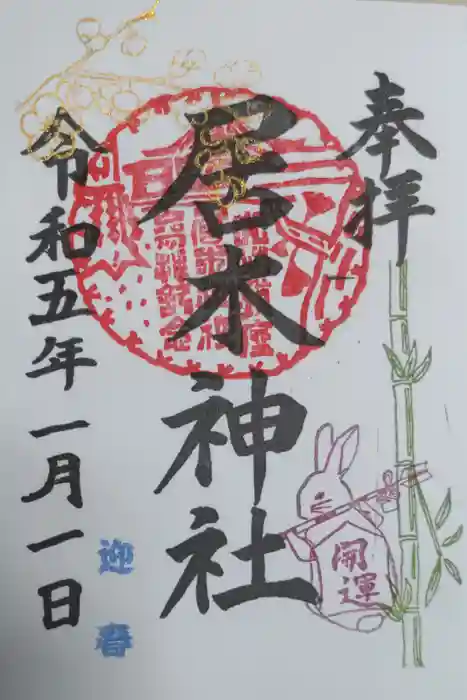 奉拝
居木神社
令和五年一月一日
迎春
開運